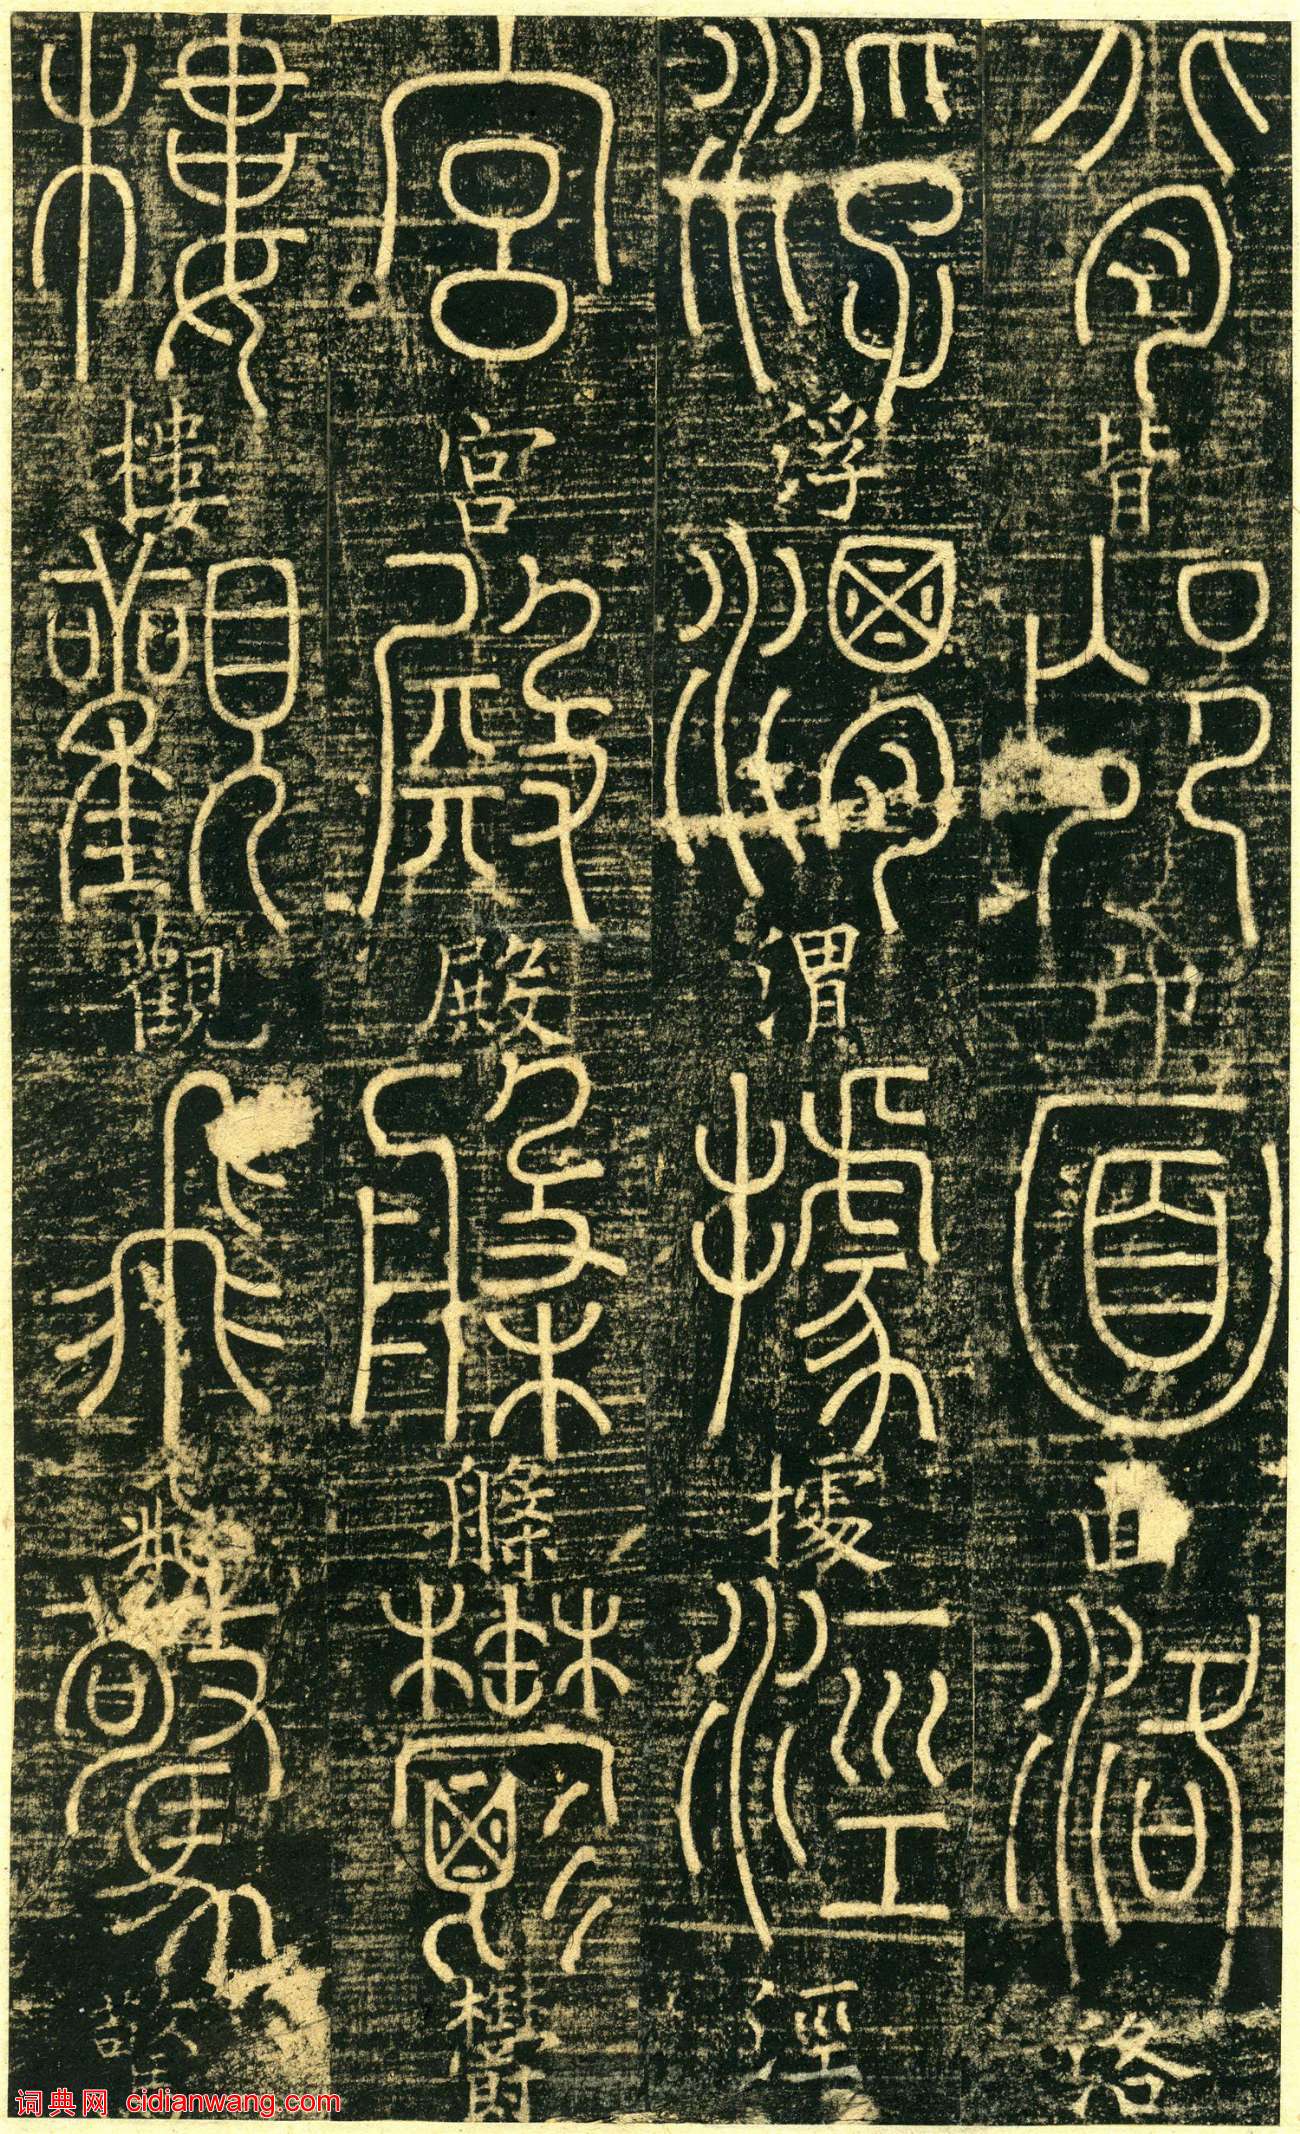 背邙面洛
浮渭據涇
宮殿盤鬱
樓觀飛驚
词典网 cidianwang.com